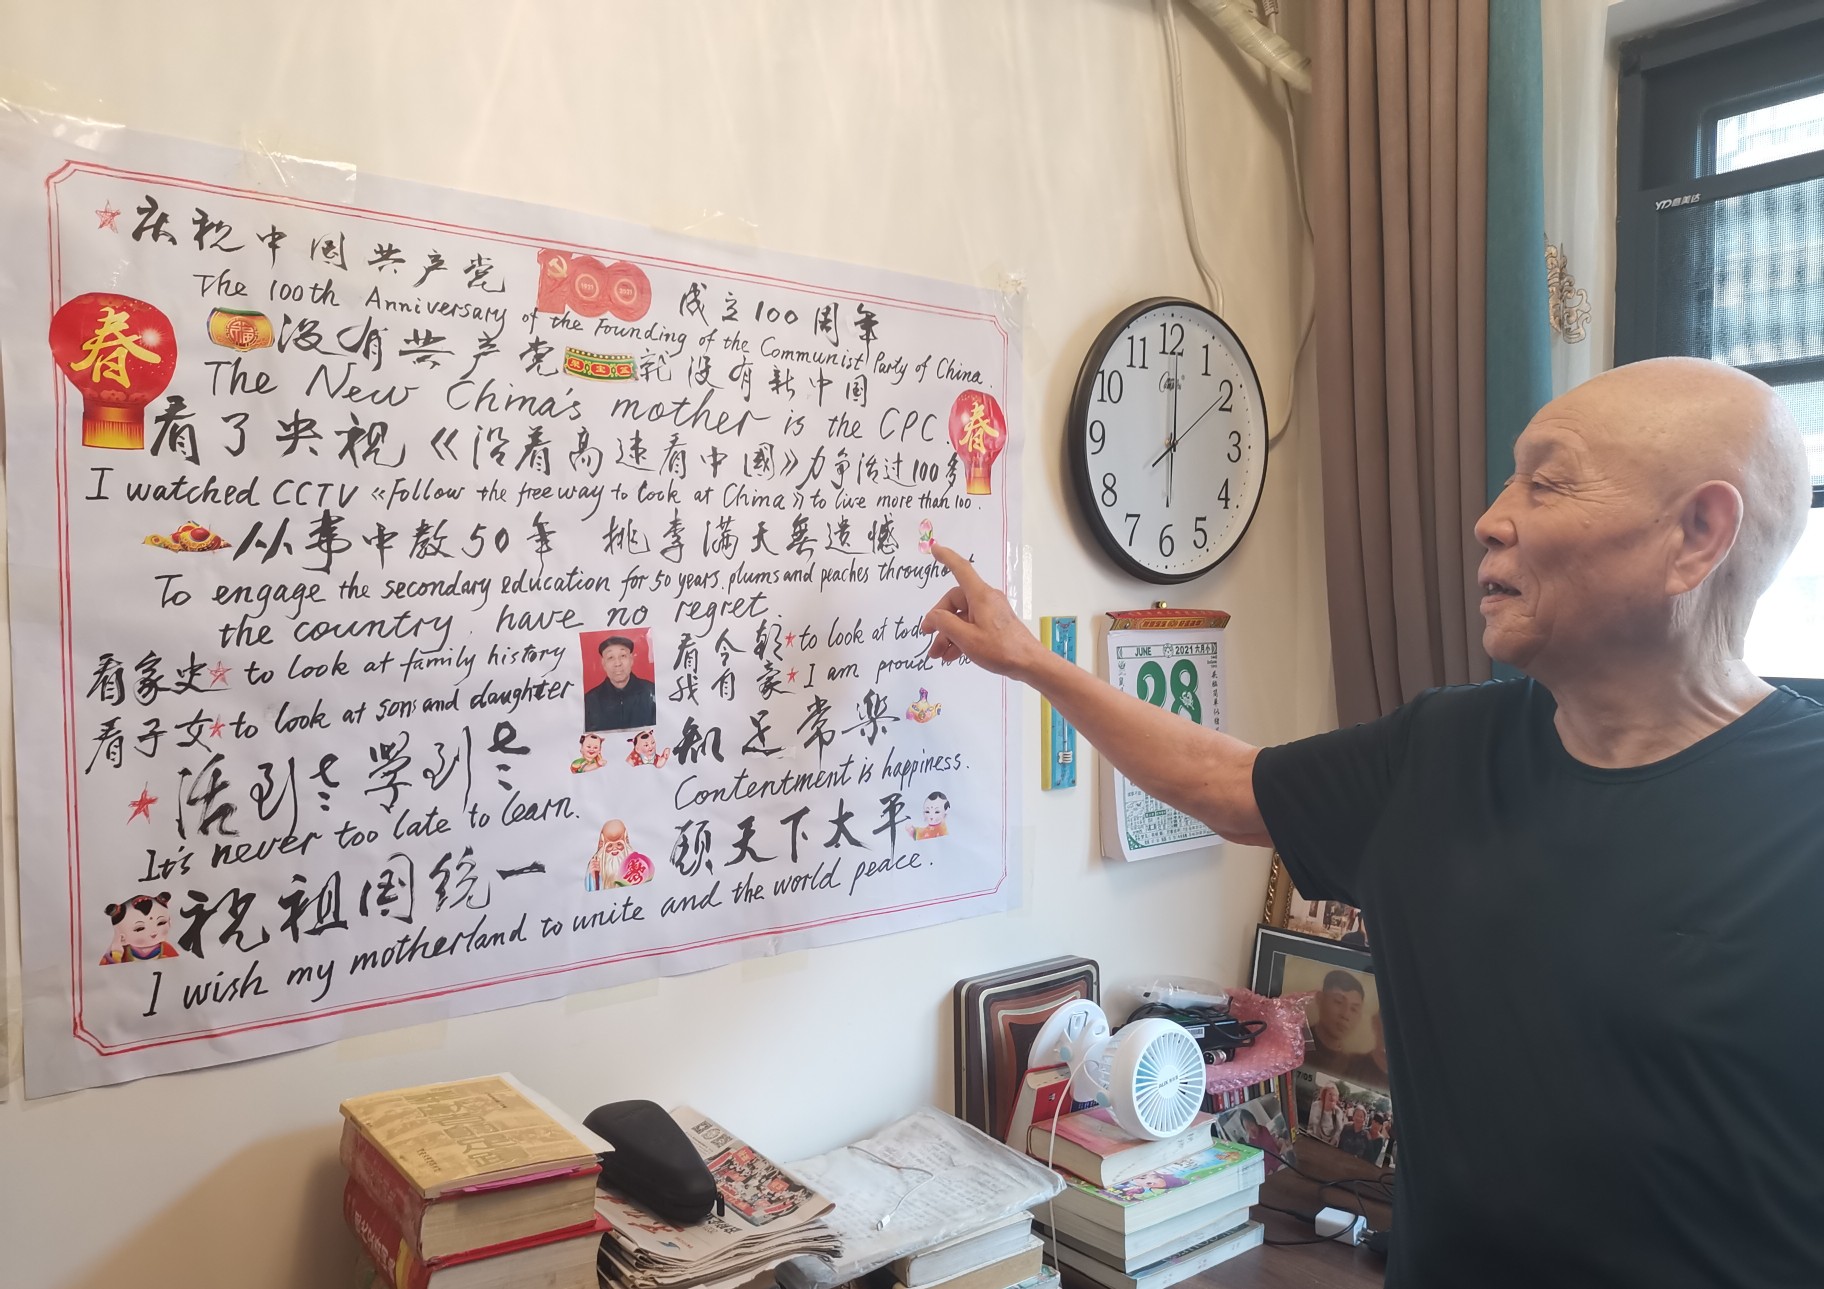 庆祝中国共产党 成立100周年
The 100th Anniversary of the Founding of the Communist Party of China.
没有共产党 就没有新中国
The New China's mother is the CPC.
春
春
看了央视《沿着高速看中國》力争活过100岁
I watched CCTV «Follow the freeway to look at China» to live more than 100.
从事中教50年 桃李满天無遗憾
To engage the secondary education for 50 years, plums and peaches throughout
the country, have no regret.
看家史 to look at family history
看今朝 to look at today
看子女 to look at sons and daughter
我自豪 I am proud
活到老学到老
It's never too late to learn.
知足常樂
Contentment is happiness.
祝祖国统一
願天下太平
I wish my motherland to unite and the world peace.
12
1
2
3
4
5
6
7
8
9
10
11
JUNE 2021 六月小
28
YD易美达